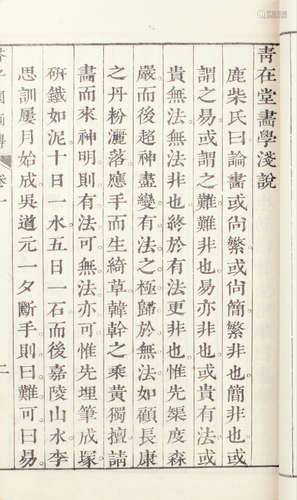 青在堂畫學淺說
鹿柴氏曰論畫或尚繁或尚簡繁非也簡亦非也或
謂之易或謂之難難非也易亦非也或貴有法或
貴無法無法非也終於有法更非也惟先榘度森
嚴而後超神盡變有法之極歸於無法如顧長康
之丹粉灑落應手而生綺草韓幹之乘黃獨擅請
畫而來神明則有法可無法亦可惟先埋筆成塚
研鐵如泥十日一水五日一石而後嘉陵山水李
思訓屢月始成吳道元一夕斷手則曰難可曰易